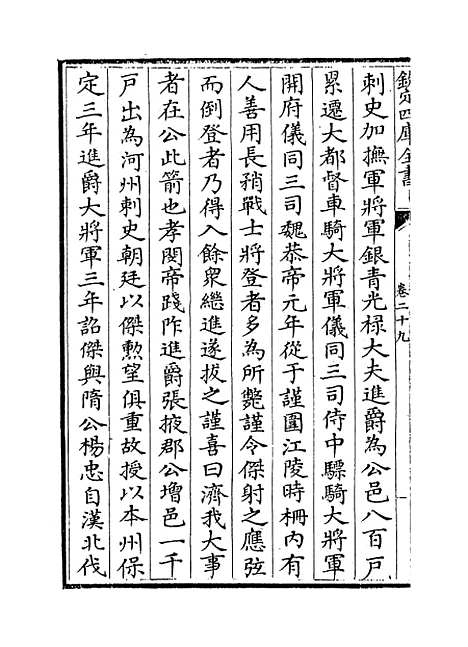 欽定四庫全書
卷二十九
刺史加撫軍將軍銀青光祿大夫進爵為公邑八百戸
累遷大都督車騎大將軍儀同三司侍中驃騎大將軍
開府儀同三司魏恭帝元年從于謹圍江陵時柵内有
人善用長矟戰士將登者多為所斃謹令傑射之應弦
而倒登者乃得入餘衆繼進遂拔之謹喜曰濟我大事
者在公此箭也孝閔帝踐阼進爵張掖郡公增邑一千
戸出為河州刺史朝廷以傑勲望俱重故授以本州保
定三年進爵大將軍三年詔傑與隋公楊忠自漢北伐